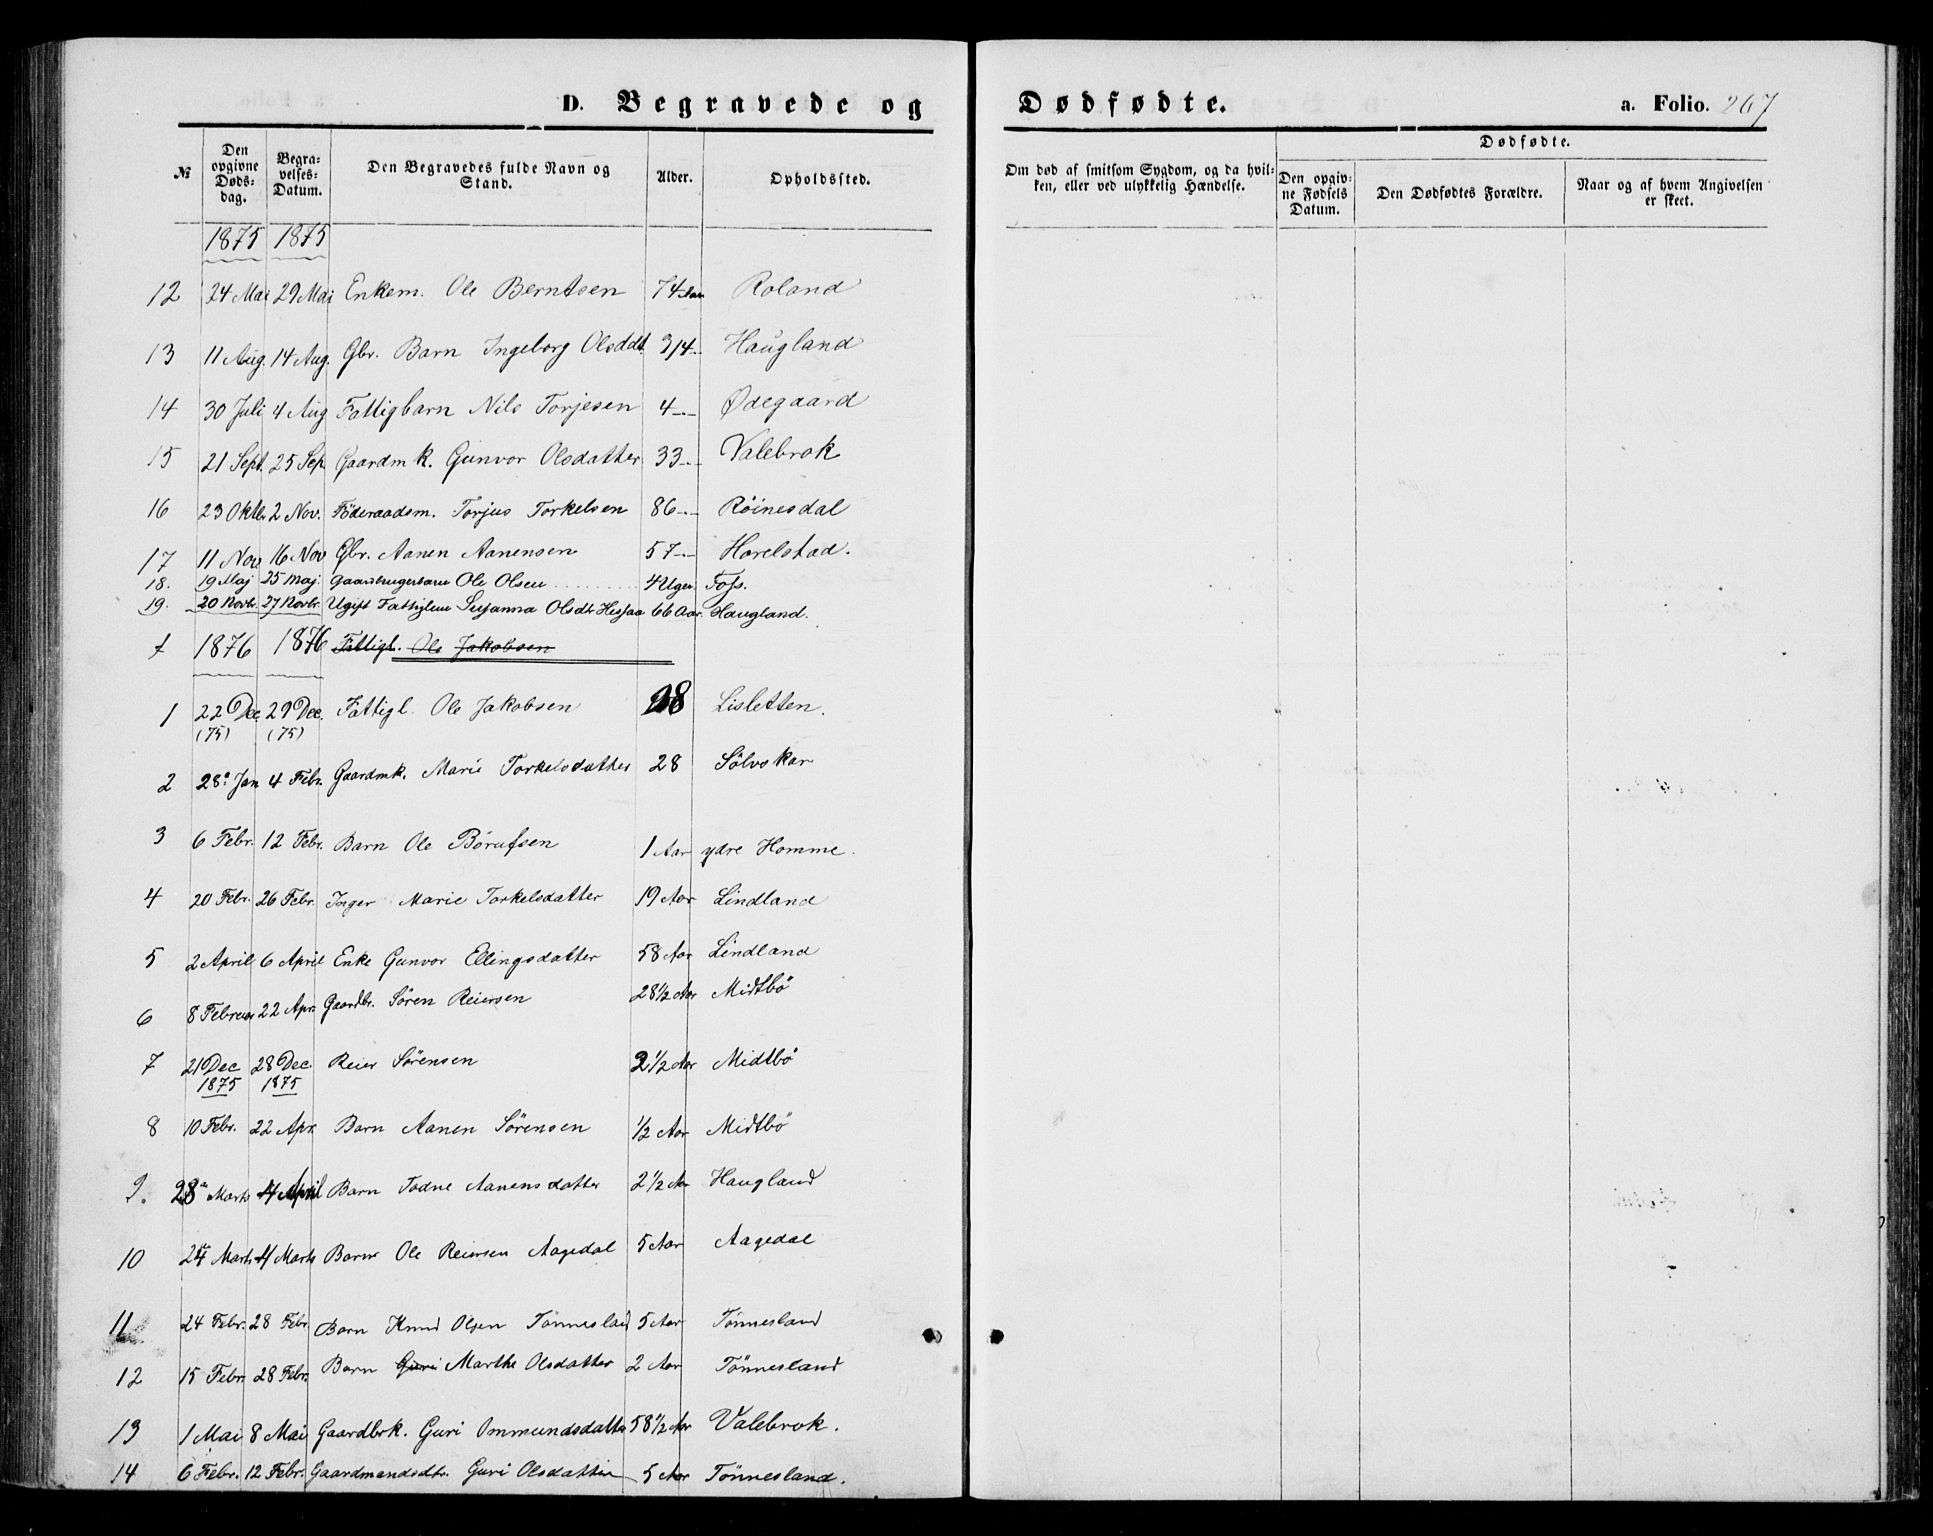 D. Begravede og Dødfødte. a. Folio. 267
№ Den opgivne Døds-dag. Begra-velses-Datum. Den Begravedes fulde Navn og Stand. Alder. Opholdssted. Om død af smitsom Sygdom, og da hvil-ken, eller ved ulykkelig Hændelse. Dødfødte. Den opgiv-ne Fødsels Datum. Den Dødfødtes Forældre. Naar og af hvem Angivelsen er skeet.
1875 1875
12 24 Mai 29 Mai Enkem. Ole Berntsen 74 Aar Roland
13 11 Aug. 14 Aug. Gbr. Barn Ingeborg Olsddt 3/4 -.- Haugland
14 30 Juli 4 Aug Fattigbarn Nils Torjesen 4 -.- Ødegaard
15 21 Sept. 25 Sep. Gaardmk. Gunvor Olsdatter 33 -.- Valebrok
16 23 Oktbr 2 Nov. Föderaadsm. Torjus Torkelsen 86 -.- Röinesdal
17 11 Nov 16 Nov Gbr. Aanen Aanensen 57 -.- Horelstad.
18. 19 Maj 25 Maj. Gaardbrugerbarn Ole Olsen 4 Uger. Foss.
19. 20 Novbr. 27 Novbr. Ugift Fattiglem Susanna Olsdtr Hessaa 66 Aar. Haugland.
1876 1876 Fattigl. Ole Jakobsen
1 22 Dec (75) 29 Dec. (75) Fattigl. Ole Jakobsen 28 Lisletten.
2 28. Jan 4 Febr. Gaardmk. Marie Torkelsdatter 28 Sölvskar
3 6 Febr. 12 Febr. Barn Ole Börufsen 1 Aar ydre Homme.
4 20 Febr. 26 Febr. Inger Marie Torkelsdatter 19 Aar Lindland
5 2 April 6 April Enke Gunvor Ellingsdatter 58 Aar Lindland
6 8 Februar 22 Apr. Gaardbr. Sören Reiersen 28 1/2 Aar Midtbö
7 21 Dec 1875 28 Dec. 1875 Reier Sörensen 2 1/2 Aar Midtbö
8 10 Febr. 22 Apr. Barn Aanen Sörensen 1/2 Aar Midtbö
9. 28 Marts 4 April Barn Todne Aanensdatter 2 1/2 Aar Haugland
10 24 Marts 4 Marts Barn Ole Reiersen Aagedal 5 Aar Aagedal
11 24 Febr. 28 Febr Barn Knud Olsen Tönnesland 5 Aar Tönnesland
12 15 Febr. 28 Febr. Barn Guri Marthe Olsdatter 2 Aar Tönnesland
13 1 Mai 8 Mai Gaardbrk. Guri Ommundsdatter 58 1/2 Aar Valebrok.
14 6 Febr. 12 Febr. Gaardmandsdtr. Guri Olsdatter 5 Aar Tönnesland.